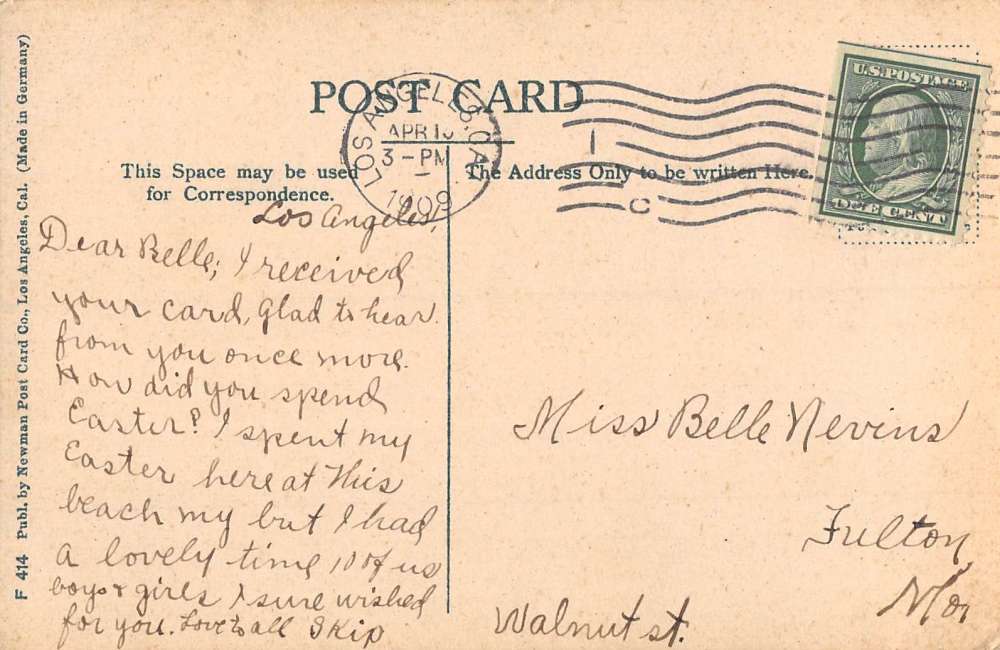 F 414 Publ. by Newman Post Card Co., Los Angeles, Cal. (Made in Germany)
POST CARD
LOS ANGELES, CA
APR 1
3 - PM
1909
U.S. POSTAGE
ONE CENT
This Space may be used
for Correspondence.
The Address Only to be written Here.
C
Los Angeles,
Dear Belle; I received
your card, Glad to hear
from you once more.
How did you spend
Easter? I spent my
Easter here at this
beach my but I had
a lovely time 10 of us
boys & girls I sure wished
for you. Love to all Skip
Miss Belle Nevins
Fulton
Mo.
Walnut st.